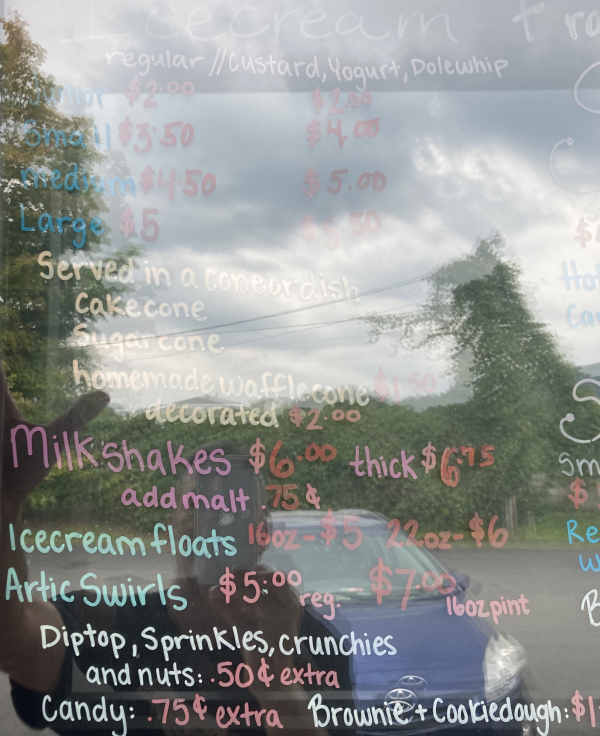 Icecream
regular // Custard, Yogurt, Dolewhip
Junior $2.00
Small $3.50 $4.00
medium $4.50 $5.00
Large $5
Served in a cone or dish
Cake cone
Sugar cone
homemade waffle cone $1.50
decorated $2.00
Milkshakes $6.00 thick $6.75
add malt .75¢
Icecream floats 16oz-$5 22oz-$6
Artic Swirls $5.00 reg. $7.00 16oz pint
Diptop, Sprinkles, crunchies
and nuts: .50¢ extra
Candy: .75¢ extra Brownie + Cookiedough: $1